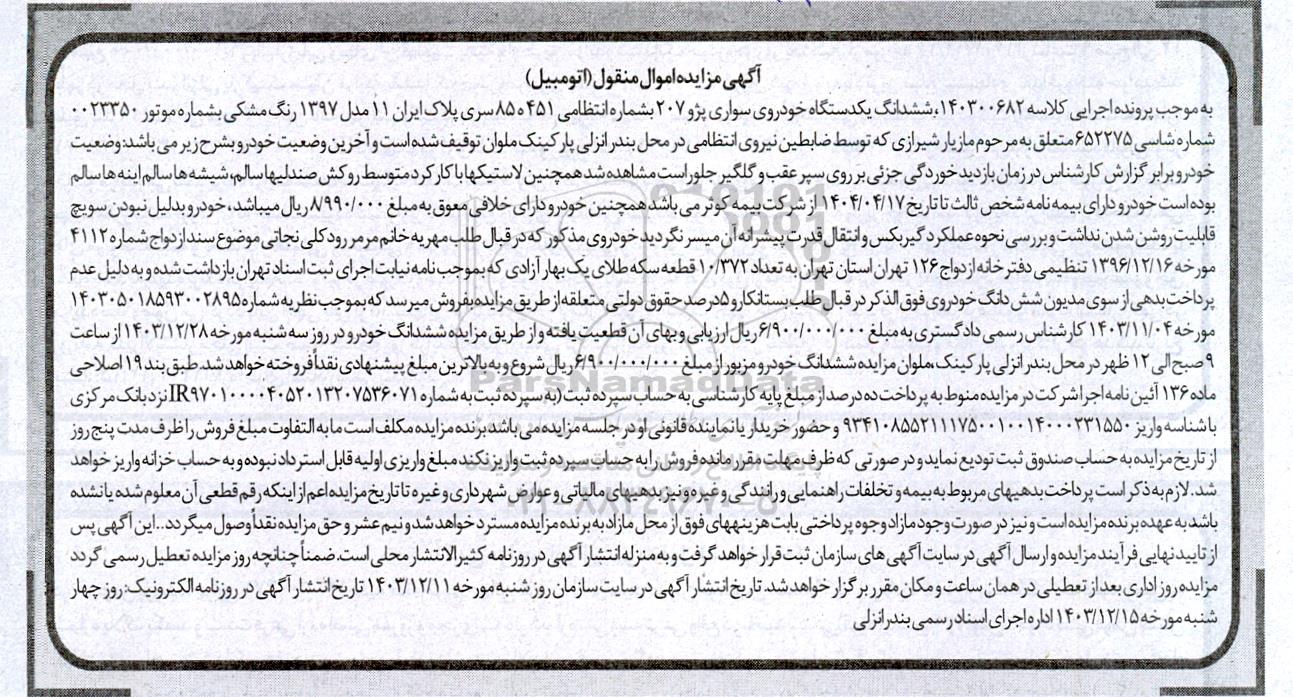 آگهی مزایده اموال منقول (اتومبیل)
به موجب پرونده اجرایی کلاسه ۱۴۰۳۰۰۶۸۲،ششدانگ یکدستگاه خودروی سواری پژو ۲۰۷ بشماره انتظامی ۴۵۱ ه ۸۵ سری پلاک ایران ۱۱ مدل ۱۳۹۷ رنگ مشکی بشماره موتور ۰۰۲۳۳۵۰
شماره شاسی ۶۵۲۲۷۵متعلق به مرحوم مازیار شیرازی که توسط ضابطین نیروی انتظامی در محل بندر انزلی پارکینک ملوان توقیف شده است و آخرین وضعیت خودرو بشرح زیر می باشد: وضعیت
خودرو برابر گزارش کارشناس در زمان بازدید خوردگی جزئی بر روی سپر عقب و گلگیر جلو راست مشاهده شد همچنین لاستیکها با کارکرد متوسط روکش صندلیها سالم، شیشه ها سالم اینه ها سالم
بوده است خودرو دارای بیمه نامه شخص ثالث تا تاریخ ۱۴۰۴/۰۴/۱۷ از شرکت بیمه کوثر می باشد همچنین خودرو دارای خلافی معوق به مبلغ ۸/۹۹۰/۰۰۰ ریال میباشد، خودرو بدلیل نبودن سویچ
قابلیت روشن شدن نداشت و بررسی نحوه عملکرد گیربکس و انتقال قدرت پیشرانه آن میسر نگردید خودروی مذکور که در قبال طلب مهریه خانم مرمر رود کلی نجاتی موضوع سند ازدواج شماره ۴۱۱۲
مورخه ۱۳۹۶/۱۲/۱۶ تنظیمی دفترخانه ازدواج ۱۲۶ تهران استان تهران به تعداد ۱۰/۳۷۲ قطعه سکه طلای یک بهار آزادی که بموجب نامه نیابت اجرای ثبت اسناد تهران بازداشت شده و به دلیل عدم
پرداخت بدهی از سوی مدیون شش دانگ خودروی فوق الذکر در قبال طلب بستانکار و ۵درصد حقوق دولتی متعلقه از طریق مزایده بفروش میرسد که بموجب نظریه شماره ۱۴۰۳۰۵۰۱۸۵۹۳۰۰۲۸۹۵
مورخه ۱۴۰۳/۱۱/۰۴ کارشناس رسمی دادگستری به مبلغ ۶/۹۰۰/۰۰۰/۰۰۰ریال ارزیابی و بهای آن قطعیت یافته و از طریق مزایده ششدانگ خودرو در روز سه شنبه مورخه ۱۴۰۳/۱۲/۲۸ از ساعت
۹ صبح الی ۱۲ ظهر در محل بندر انزلی پارکینک، ملوان مزایده ششدانگ خودرو مزبور از مبلغ ۶/۹۰۰/۰۰۰/۰۰۰ ریال شروع و به بالاترین مبلغ پیشنهادی نقداً فروخته خواهد شد. طبق بند ۱۹ اصلاحی
ماده ۱۳۶ آئین نامه اجرا شرکت در مزایده منوط به پرداخت ده درصد از مبلغ پایه کارشناسی به حساب سپرده ثبت (به سپرده ثبت به شماره IR۹۷۰۱۰۰۰۰۴۰۵۲۰۱۳۲۰۷۵۳۶۰۷۱ نزد بانک مرکزی
با شناسه واریز ۹۳۴۱۰۸۵۵۲۱۱۱۱۷۵۰۰۱۰۰۱۴۰۰۰۳۳۱۵۵۰ و حضور خریدار یا نماینده قانونی او در جلسه مزایده می باشد برنده مزایده مکلف است مابه التفاوت مبلغ فروش را ظرف مدت پنج روز
از تاریخ مزایده به حساب صندوق ثبت تودیع نماید و در صورتی که ظرف مهلت مقرر مانده فروش را به حساب سپرده ثبت واریز نکند مبلغ واریزی اولیه قابل استرداد نبوده و به حساب خزانه واریز خواهد
شد. لازم به ذکر است پرداخت بدهیهای مربوط به بیمه و تخلفات راهنمایی و رانندگی و غیره و نیز بدهیهای مالیاتی و عوارض شهرداری و غیره تا تاریخ مزایده اعم از اینکه رقم قطعی آن معلوم شده یا نشده
باشد به عهده برنده مزایده است و نیز در صورت وجود مازاد وجوه پرداختی بابت هزینههای فوق از محل مازاد به برنده مزایده مسترد خواهد شد و نیم عشر و حق مزایده نقداً وصول میگردد..این آگهی پس
از تایید نهایی فرآیند مزایده و ارسال آگهی در سایت آگهی های سازمان ثبت قرار خواهد گرفت و به منزله انتشار آگهی در روزنامه کثیرالانتشار محلی است. ضمناً چنانچه روز مزایده تعطیل رسمی گردد
مزایده روز اداری بعد از تعطیلی در همان ساعت و مکان مقرر برگزار خواهد شد. تاریخ انتشار آگهی در سایت سازمان روز شنبه مورخه ۱۴۰۳/۱۲/۱۱ تاریخ انتشار آگهی در روزنامه الکترونیک: روز چهار
شنبه مورخه ۱۴۰۳/۱۲/۱۵ اداره اجرای اسناد رسمی بندر انزلی
ParsNamadData